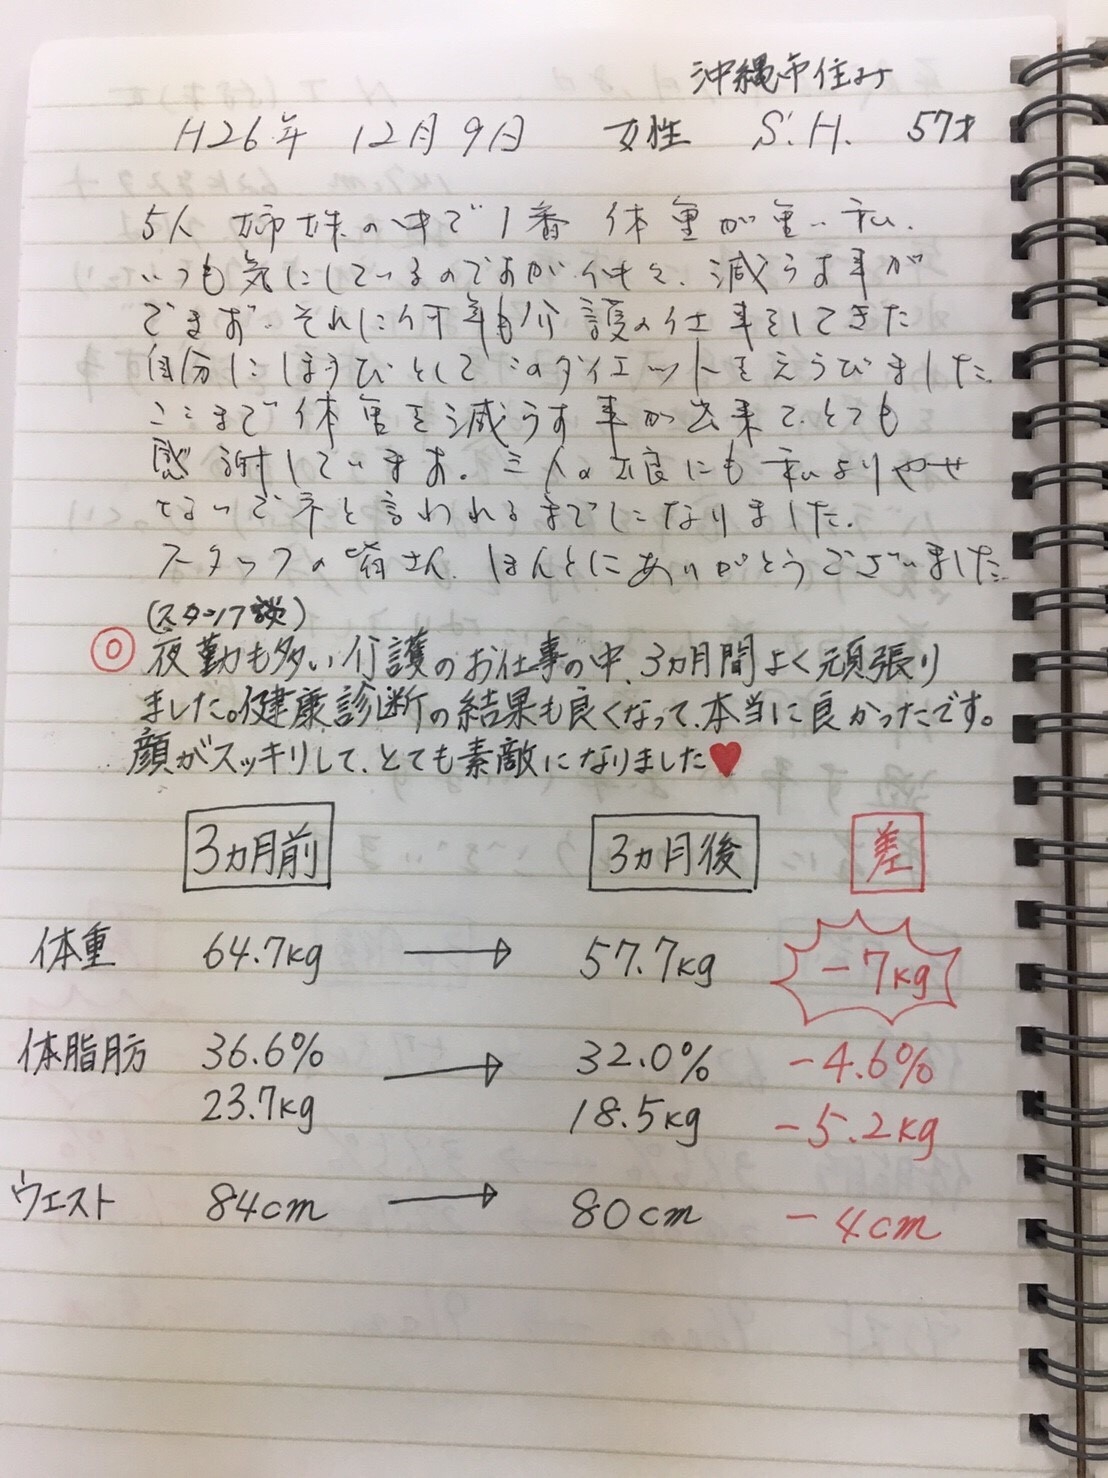 沖縄市住み
H26年 12月9日 女性 S.H. 57才
5人姉妹の中で1番体重が重い私.
いつも気にしているのですが、仲々、減らす事が
できず、それに何年も介護の仕事をしてきた
自分にほうびとしてこのダイエットをえらびました.
ここまで体重を減らす事が出来て、とても
感謝しています。三人の娘にも私よりやせ
ないでネと言われるまでになりました.
スタッフの皆さん、ほんとにありがとうございました.
(スタッフ談)
◎ 夜勤も多い介護のお仕事の中、3ヵ月間よく頑張り
ました。健康診断の結果も良くなって、本当に良かったです。
顔がスッキリして、とても素敵になりました♥
3ヵ月前 3ヵ月後 差
体重 64.7kg → 57.7kg -7kg
体脂肪 36.6% → 32.0% -4.6%
23.7kg 18.5kg -5.2kg
ウエスト 84cm → 80cm -4cm